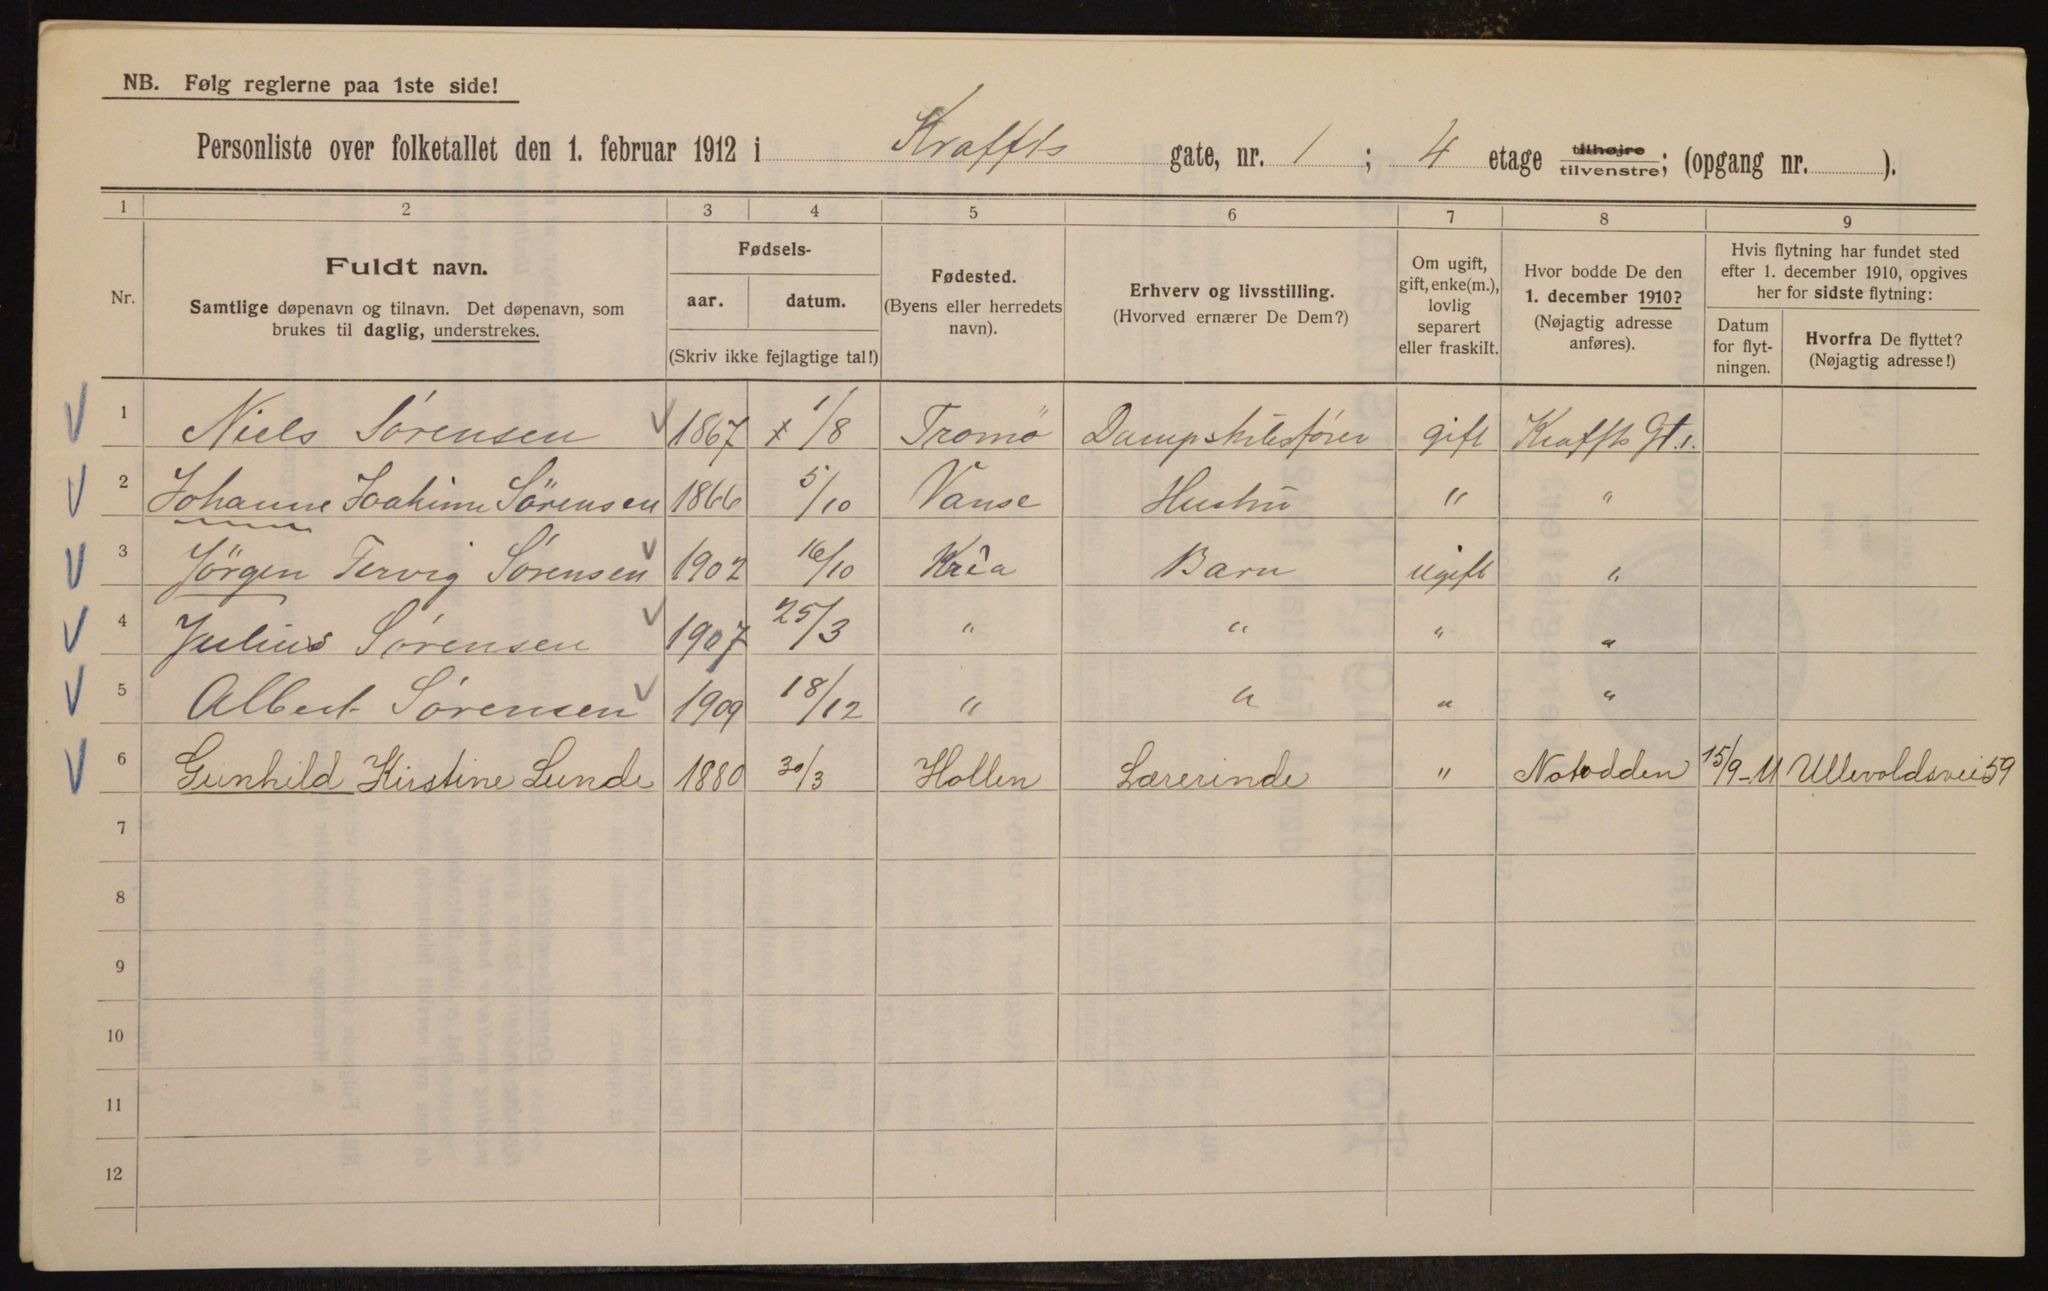 NB. Følg reglerne paa 1ste side!
Personliste over folketallet den 1. februar 1912 i Kraffts gate, nr. 1 ; 4 etage tilhøjre tilvenstre; (opgang nr. ).
1 2 3 4 5 6 7 8 9
Nr.
Fuldt navn.
Samtlige døpenavn og tilnavn. Det døpenavn, som
brukes til daglig, understrekes.
Fødsels-
aar. datum.
(Skriv ikke fejlagtige tal!)
Fødested.
(Byens eller herredets
navn).
Erhverv og livsstilling.
(Hvorved ernærer De Dem?)
Om ugift,
gift, enke(m.),
lovlig
separert
eller fraskilt.
Hvor bodde De den
1. december 1910?
(Nøjagtig adresse
anføres).
Hvis flytning har fundet sted
efter 1. december 1910, opgives
her for sidste flytning:
Datum
for flyt-
ningen.
Hvorfra De flyttet?
(Nøjagtig adresse!)
1 Niels Sörensen 1867 1/8 Tromö Dampskibsfører gift Kraffts Gt. 1.
2 Johanne Joakime Sörensen 1866 5/10 Vanse Hustru " "
3 Jörgen Tervig Sörensen 1902 16/10 Kr̂a Barn ugift "
4 Julius Sörensen 1907 25/3 " " " "
5 Albert Sörensen 1909 18/12 " " " "
6 Gunhild Kirstine Lunde 1880 30/3 Hollen Lærerinde " Notodden 15/9-11 Ullevoldsvei 59
7
8
9
10
11
12